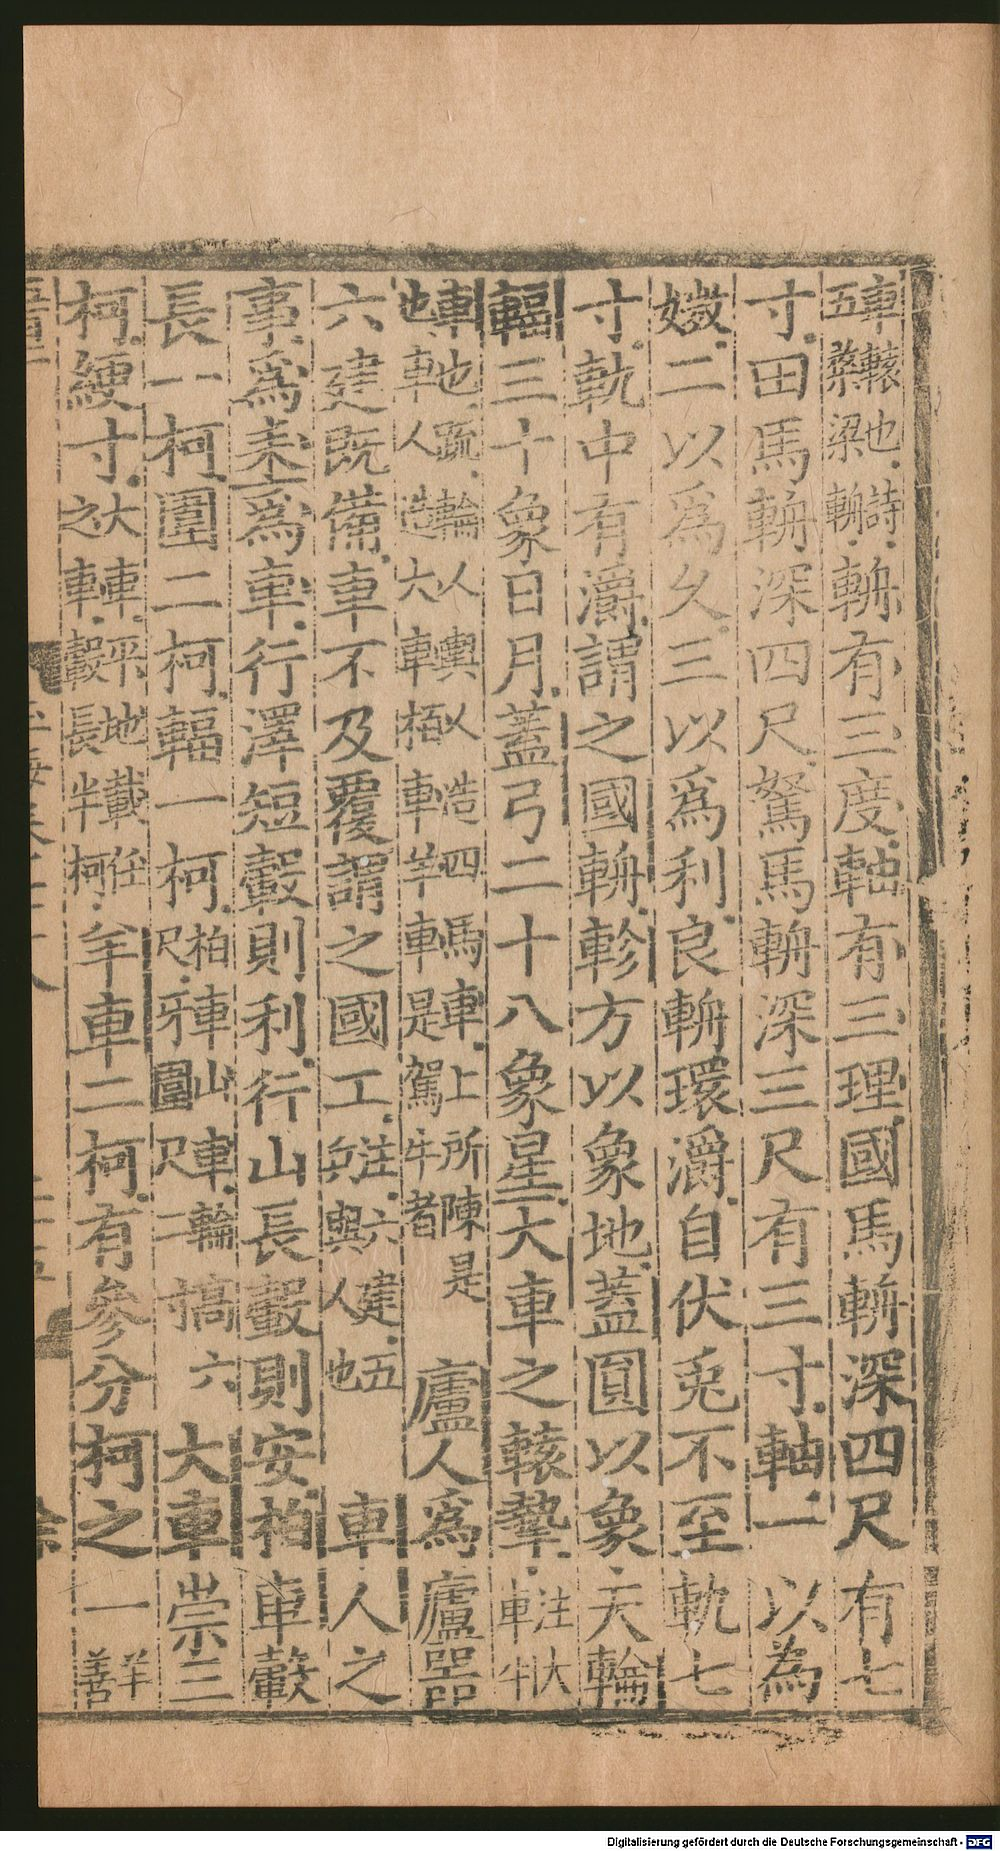 車轅也詩五楘梁輈輈有三度軸有三理國馬輈深四尺有七
寸田馬輈深四尺駑馬輈深三尺有三寸軸一以為
媺二以爲久三以爲利良輈環灂自伏兎不至軓七
寸軓中有灂謂之國輈軫方以象地蓋圓以象天輪
輻三十象日月蓋弓二十八象星大車之轅摯注大車牛
車也疏輪人輿人造四馬車上所陳是也車人造大車栢車羊車是駕牛者廬人爲廬器
六建既備車不及覆謂之國工注六建五兵與人也車人之
事爲耒爲車行澤短轂則利行山長轂則安柏車轂
長一柯圍二柯輻一柯柏車山車輪高六尺牙圍尺二寸大車崇三
柯綆寸大車平地載任之車轂長半柯羊車二柯有參分柯之一羊善
Digitalisierung gefördert durch die Deutsche Forschungsgemeinschaft - DFG